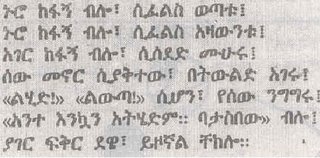 ኑሮ ከፋኝ ብሎ፣ ሲፈልስ ወጣቱ፤
ኑሮ ከፋኝ ብሎ፣ ሲፈልስ አዛውንቱ፤
አገር ከፋኝ ብሎ፣ ሲሰደድ ሙሁሩ፤
ሰው መኖር ሲያቅተው፣ በትውልድ አገሩ፤
«ልሂድ!» «ልውጣ!» ሲሆን፣ የሰው ንግግሩ፤
«አንተ እንኳን አትሂድም። ባታስበው» ብሎ፤
ያገር ፍቅር ደዌ፣ ይዞኛል ቸክሎ።